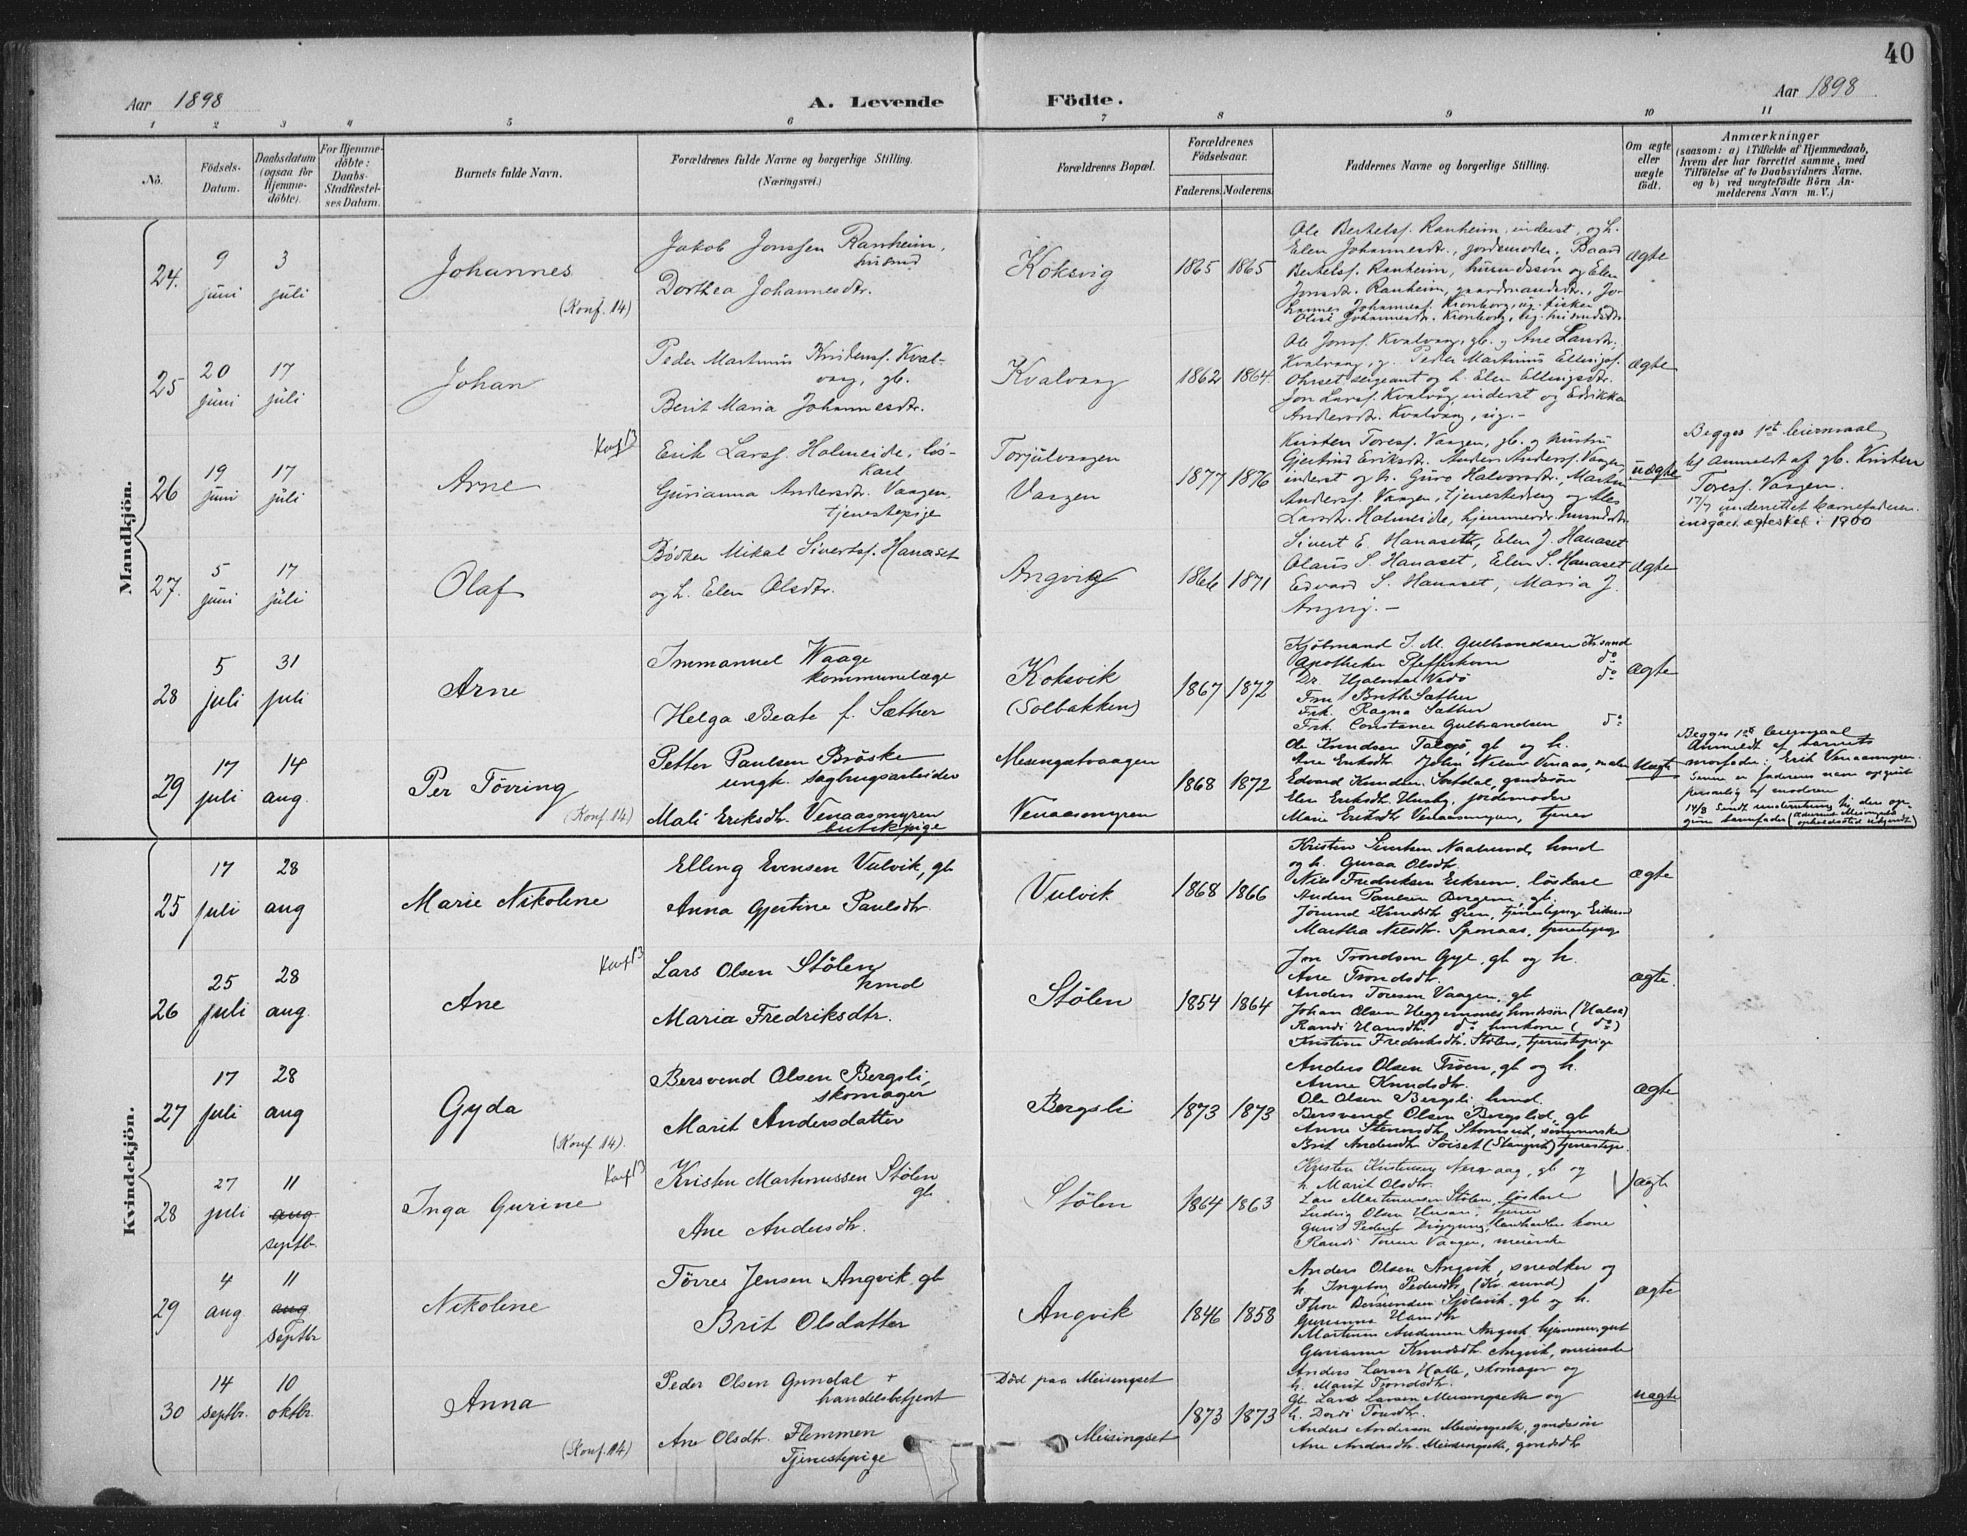 40
Aar 1898
A. Levende Födte.
Aar 1898
1 2 3 4 5 6 7 8 9 10 11
No.
Födsels-Datum.
Daabsdatum (ogsaa for Hjemme-döbte).
For Hjemme-döbte: Daabs-Stadfæstel-ses Datum.
Barnets fulde Navn.
Forældrenes fulde Navne og borgerlige Stilling.
(Næringsvei.)
Forældrenes Bopæl.
Forældrenes Födselsaar.
Faderens. Moderens.
Faddernes Navne og borgerlige Stilling.
Om ægte eller uægte födt.
Anmærkninger
(saasom: a) i Tilfælde af Hjemmedaab,
hvem der har forrettet samme, med
Tilföielse af to Daabsvidners Navne,
og b) ved uægtefödte Börn An-
melderens Navn m. V.)
Mandkjön.
24. 9 juni 3 juli
Johannes
(Konf. 14)
Jakob Jonssen Ranheim,
husmd
Dorthea Johannesdtr.
Koksvig
1865 1865
Ole Bertelsf. Ranheim, inderst, og h.
Elen Johannesdtr., jordemoder, Baard
Bertelsf. Ranheim, husmdssøn og Elen
Jonsdtr. Ranheim, gaardmandsdtr., Jo-
hannes Johannesf. Kronborg, ug. fisker og
Oline Johannesdtr. Kronborg, ug. husmdsdtr.
ægte
25 20 juni 17 juli
Johan
Peder Martinus Kristensf. Kval-
vaag, gb.
Berit Maria Johannesdtr.
Kvalvaag
1862 1864
Ole Jonsf. Kvalvaag, gb. og Ane Larsdtr.
Kvalvaag, g. Peder Martinus Ellingsf.
sergeant og h. Elen Ellingsdtr.
Jon Larsf. Kvalvåg, inderst og
Andersdtr. Kvalvaag, ug. –
ægte
26 19 juni 17 juli
Konf 13
Arne
Erik Larsf. Holmeide, løs-
karl
Gurianna Andersdtr. Vaagen,
tjenestepige
Torjulvaagen
Vaagen
1877 1876
Kristen Toresf. Vaagen, gb. og hustru
Gjertrud Eriksdtr. Anders Andersf. Vaagen,
inderst og h. Guro Halvorsdtr., Martin
Andersf. Vaagen, tjenestedreng og Ales
Larsdtr. Holmeide, hjemmevær. husmdsdtr.
uægte
Begges 1ste leiermaal,
Anmeldt af gb. Kristen
Toresf. Vaagen.
17/7 underrettet barnefaderen.
indgået ægteskab i 1900
27. 5 juni 17 juli
Olaf
Bødker Mikal Sivertsf. Hanaset
og h. Elen Olsdtr.
Angvig
1866 1871
Sivert E. Hanaseth, Elen J. Hanaset
Olaus S. Hanaset, Elen S. Hanaset
Edvard S. Hanaset, Maria J.
Angvig. –
ægte
28 5 juli 31 juli
Arne
Immanuel Waage
kommunelæge
Helga Beate f. Sæther
Koksvik
(Solbakken)
1867 1872
Kjøbmand J. M. Gulbrandsen Kr.sund
Apotheker Pfefferkorn do
Dr. Hjalmar do
Fru Sæther
Frk. Ragna Sæther
Frk. Constance Gulbrandsen do
ægte
29 17 juli 14 aug.
Per Tövring
(Konf. 14)
Petter Paulsen Bröske
ungk. sagbrugsarbeider
Mali Eriksdtr. Venaasmyren
butikpige
Meisingsetvaagen
Venaasmyren
1868 1872
Ole Knudsen Talgø, gb og h.
Ane Eriksdtr. John Nilsen Venaas, maler
Edvard Knudsen gaardssön
Elen Eriksdtr Husby, jordemoder
Marie Eriksdtr Venaasmyren, tjener
Uægte
Begges 1ste leiermaal
Anmeldt af barnets
morfader: Erik Venaasmyren.
Senere er faderens navn opgivet
personlig af moderen
14/8 Sendt underretning til den op-
givne barnefader
Kvindekjön.
25 17 juli 28 aug
Marie Nikoline
Elling Evensen Vulvik, gb
Anna Gjertine Paulsdtr.
Vulvik
1868 1866
Kristen Sivertsen Naalsund, hmd
og h. Guraa Olsdtr.
Nils Fredriksen Eikrem, löskarl
Anders Paulsen Bergem, gb.
Jørund Knudsdtr Øien, tjenestepige Eikrem
Martha Nilsdtr. Sponaas, tjenestepige
ægte
26 25 juli 28 aug.
Konf 13
Ane
Lars Olsen Stölen
hmd
Maria Fredriksdtr.
Stölen
1854 1864
Jon Trondsen Gyl, gb og h.
Ane Trondsdtr.
Anders Toresen Vaagen, gb
Johan Olsen Heggemsnes hmdssön (Halsa)
Randi Hansdtr. do hmkone ( do )
Kristine Fredriksdtr. Stölen, tjenestepige
ægte.
27 17 juli 28 aug
Gyda
(Konf. 14).
Bersvend Olsen Bergsli,
skomager
Marit Andersdatter
Bergsli
1873 1873
Anders Olsen Tröen, gb og h.
Anne Knudsdtr.
Ole Olsen Bergsli hmd.
Bersvend Olsen Bergslid, gb
Anne
Brit Andersdtr Söiset (Stangvik) tjenestepige
ægte
28 27 juli 11 aug. septbr.
Konf 13
Inga Gurine
Kristen Martinussen Stölen
gb
Ane Andersdtr.
Stölen
1864 1863
Kristen Kristensen gb og
h. Marit Olsdtr.
Lars Martinussen Stölen, löskarl
Ludvig Olsen tjener
Guri Pedersdtr kone
Randi Toresen Vaagen, meierske
ægte
29 4 aug. 11 aug septbr
Nikoline
Törres Jensen Angvik, gb
Brit Olsdatter
Angvik
1846 1858
Anders Olsen Angvik, snedker og
h. Ingebor Pedersdtr. (Kr. sund)
Thore Bersvendsen gb og h.
Gurianna Hansdtr
Martinus Andersen Angvik hjemmev. gut
Gurianna Knudsdtr. Angvik, meierske
ægte
30 14 septbr. 10 oktbr.
Anna
(Konf. 14)
Peder Olsen Gundal +
handelsbetjent
Ane Olsdtr. Flemmen
Tjenestepige
Död paa Meisingset
Meisingset
1873 1873
Anders Larsen Halle, skomager og
h. Marit Trondsdtr.
Gb Lars Larsen Meisingseth og
h. Dordi
Anders Andersen Meisingseth, gaardssön
Ane Andersdtr. Meisingseth, gaardsdtr
uægte